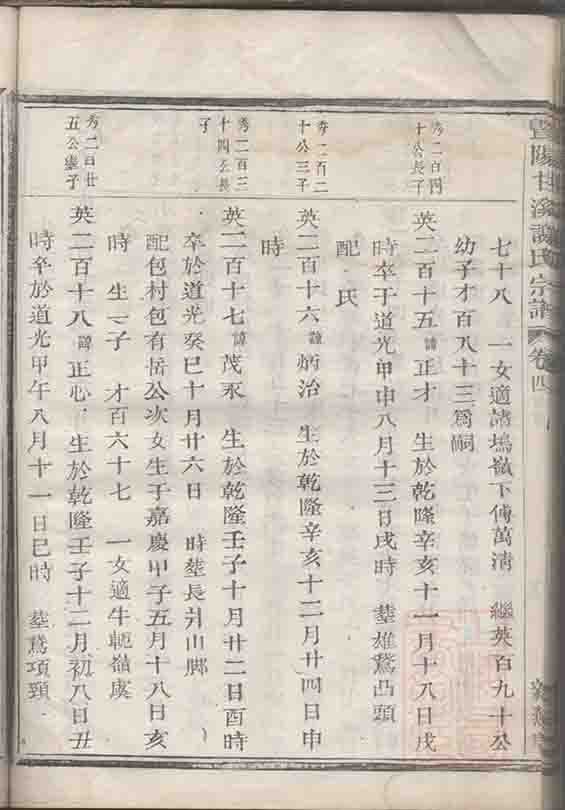 暨陽甘溪謝氏宗譜 卷四
七十八 一女適諸塢嶺下傅萬清 繼英百九十公
幼子才百八十三爲嗣
秀二百四十公長子
英二百十五 諱正才 生於乾隆辛亥十一月十八日戌
時卒于道光甲申八月十三日戌時 塟雄鵞凸頭
配 氏
秀二百二十公三子
英二百十六 諱炳治 生於乾隆辛亥十二月廿四日申
時
秀二百三十四公長子
英二百十七 諱茂永 生於乾隆壬子十月廿二日酉時
卒於道光癸巳十月廿六日 時塟長爿山脚
配包村包有岳公次女生于嘉慶甲子五月十八日亥
時 生一子 才百六十七 一女適牛軛嶺虞
秀二百廿五公繼子
英二百十八 諱正心 生於乾隆壬子十二月初八日丑
時卒於道光甲午八月十一日巳時 塟鵞項頸